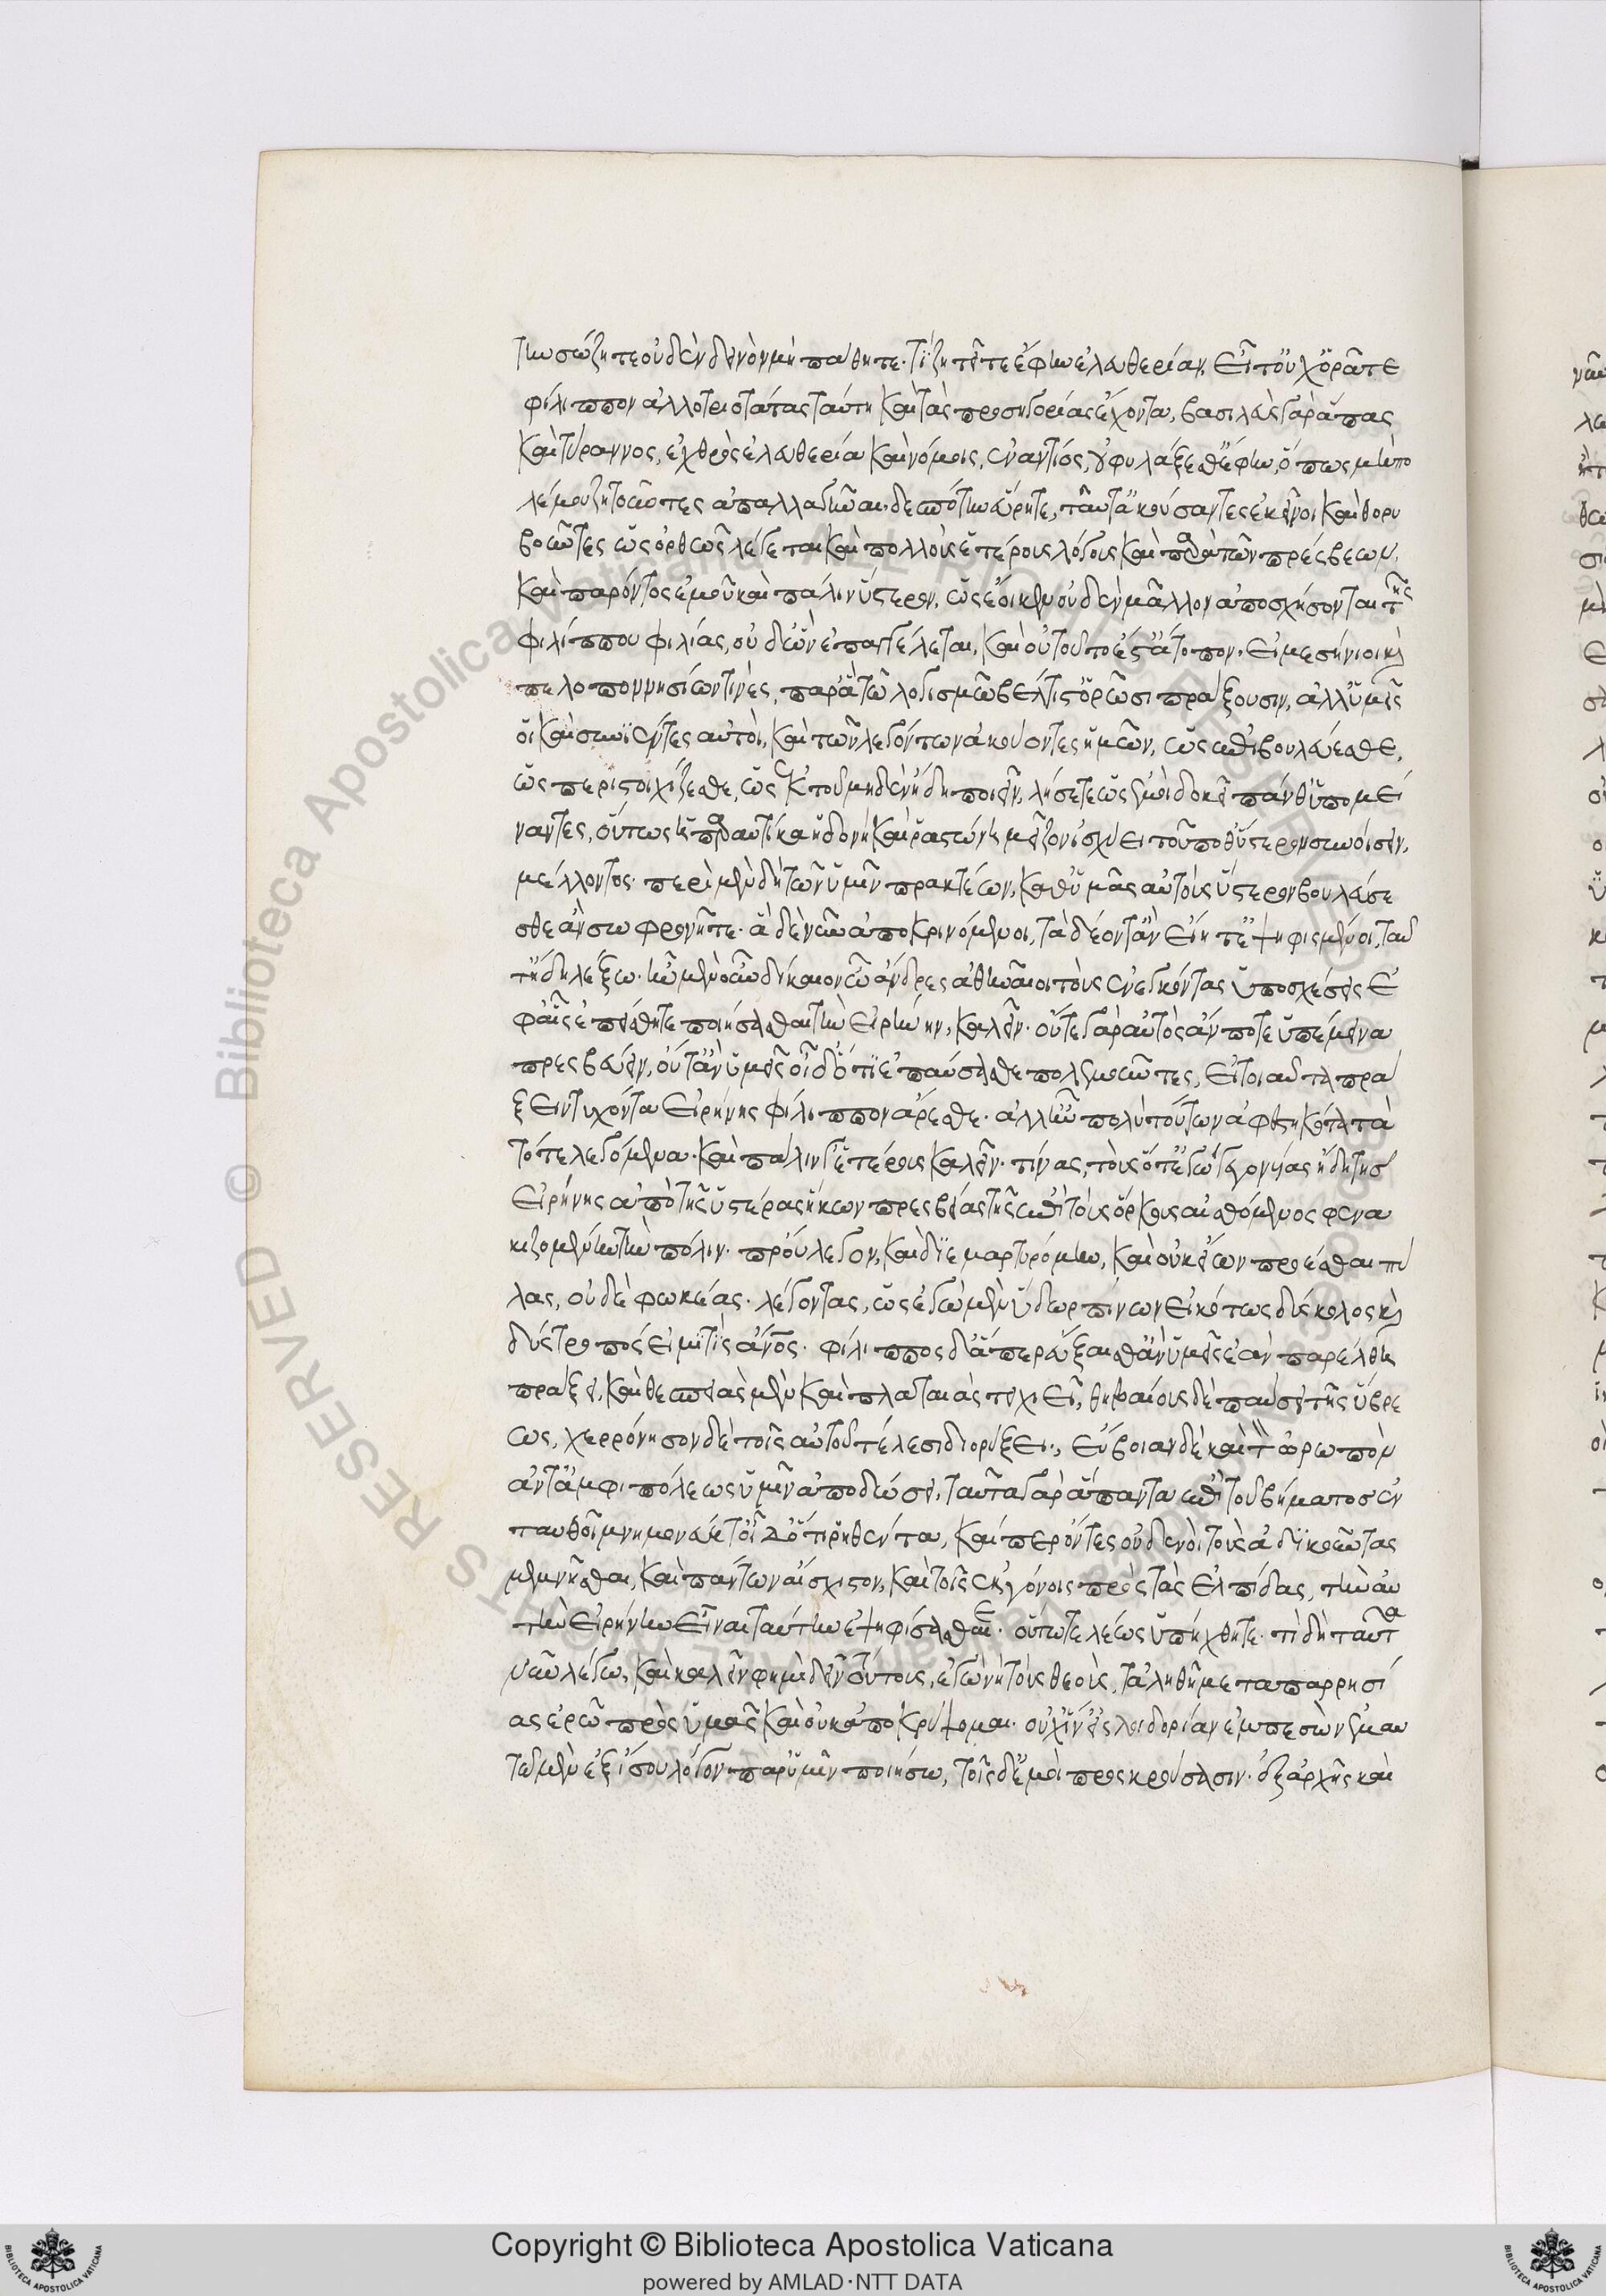 την σώζητε οὐδὲν δεινὸν μὴ πάθητε. τί ζητεῖτε ἔφην ἐλευθερίαν, εἶτ' οὐχ ὁρᾶτε
φίλιππον ἀλλοτριοτάτας ταύτη καὶ τὰς προσηγορίας ἔχοντα, βασιλεὺς γὰρ ἅπας
καὶ τύραννος, ἐχθρὸς ἐλευθερία καὶ νόμοις, ἐναντίος, οὐ φυλάξεσθ' ἔφην, ὅπως μὴ πο
λέμου ζητοῦντες ἀπαλλαγῆναι, δεσπότην εὕρητε, ταῦτ' ἀκούσαντες ἐκεῖνοι καὶ θορυ
βοῦντες ὡς ὀρθῶς λέγεται καὶ πολλοὺς ἑτέρους λόγους καὶ παρὰ τῶν πρέσβεων,
καὶ παρόντος ἐμοῦ καὶ πάλιν ὕστερον, ὡς ἔοικεν οὐδὲν μᾶλλον ἀποσχήσονται τῆς
φιλίππου φιλίας, οὐδ' ὧν ἐπαγγέλεται, καὶ οὐ τοῦτό ἐστ' ἄτοπον. εἰ μεσήνιοι καὶ
πελοποννησίων τινὲς, παρ' ἃ τῶ λογισμῶ βέλτισθ' ὁρῶσι πράξουσιν, ἀλλ' ὑμεῖς
οἱ καὶ συνϊέντες αὐτοὶ, καὶ τῶν λεγόντων ἀκούοντες ἡμῶν, ὡς ἐπιβουλεύεσθε,
ὡς περιστοιχίζεσθε, ὡς ἐκ τοῦ μηδὲν ἤδη ποιεῖν, λήσετε ὡς ἐμοὶ δοκεῖ πάνθ' ὑπομεί
ναντες, οὕτως ἡ παραυτίκα ἡδονὴ καὶ ῥαστώνη μεῖζον ἰσχύει τοῦ ποθ' ὕστερον συνοίσειν,
μέλλοντος. περὶ μὲν δὴ τῶν ὑμῖν πρακτέων, καθ' ὑμᾶς αὐτοὺς ὕστερον βουλεύσε
σθε ἂν σωφρονῆτε. ἃ δὲ νῦν ἀποκρινόμενοι, τὰ δέοντ' ἂν εἴητ' ἐψηφισμένοι, ταῦ
τ' ἤδη λέξω. ἦν μὲν οὖν δίκαιον ὦ ἄνδρες ἀθηναῖοι τοὺς ἐνεγκόντας ὑποσχέσεις ἐ
φ' αἷς ἐπείσθητε ποιήσασθαι τὴν εἰρήνην, καλεῖν. οὔτε γὰρ αὐτὸς ἄν ποτε ὑπέμεινα
πρεσβεύειν, οὔτ' ἂν ὑμεῖς οἶδ' ὅτι ἐπαύσασθε πολεμοῦντες, εἰ τοιαῦτα πρά
ξειν τυχόντα εἰρήνης φίλιππον ᾤεσθε. ἀλλ' ἦν πολὺ τούτων ἀφεστηκότα τὰ
τότε λεγόμενα. καὶ πάλιν γ' ἑτέρους καλεῖν. τίνας, τοὺς ὅτ' ἐγὼ γεγονυίας ἤδη τῆς
εἰρήνης ἀπὸ τῆς ὑστέρας ἥκων πρεσβείας τῆς ἐπὶ τοὺς ὅρκους αἰσθόμενος φενα
κιζομένην τὴν πόλιν. προὔλεγον, καὶ διεμαρτυρόμην, καὶ οὐκ εἴων προέσθαι πύ
λας, οὐδὲ φωκέας. λέγοντας, ὡς ἐγὼ μὲν ὕδωρ πίνων εἰκότως δύσκολος καὶ
δύστροπός εἰμί τις ἄνος. φίλιππος δ' ἅπερ εὔξαισθ' ἂν ὑμεῖς ἐὰν παρέλθη
πράξει, καὶ θεσπιὰς μὲν καὶ πλαταιὰς τειχιεῖ, θηβαίους δὲ παύσει τῆς ὕβρε
ως, χερρόνησον δὲ τοῖς αὑτοῦ τέλεσι διορύξει, εὔβοιαν δὲ καὶ τὸν ὠρωπὸν
ἀντ' ἀμφιπόλεως ὑμῖν ἀποδώσει, ταῦτα γὰρ ἅπαντα ἐπὶ τοῦ βήματος ἐν
ταυθοῖ μνημονεύετ' οἶδ' ὅτι ῥηθέντα, καίπερ ὄντες οὐ δεινοὶ τοὺς ἀδικοῦντας
μεμνῆσθαι, καὶ πάντων αἴσχιστον, καὶ τοῖς ἐκγόνοις πρὸς τὰς ἐλπίδας, τὴν αὐ
τὴν εἰρήνην εἶναι ταύτην ἐψηφίσασθε. οὕτω τελέως ὑπήχθητε. τί δὴ ταῦτα
νῦν λέγω, καὶ καλεῖν φημὶ δεῖν τούτους, ἐγὼ νὴ τοὺς θεοὺς, τἀληθῆ μετὰ παρρησί
ας ἐρῶ πρὸς ὑμᾶς καὶ οὐκ ἀποκρύψομαι. οὐχ ἵν' εἰς λοιδορίαν ἐμπεσὼν ἐμαυ
τῶ μὲν ἐξ ἴσου λόγον παρ' ὑμῖν ποιήσω, τοῖς δ' ἐμοὶ προσκρούσασιν. ἐξ ἀρχῆς καὶ